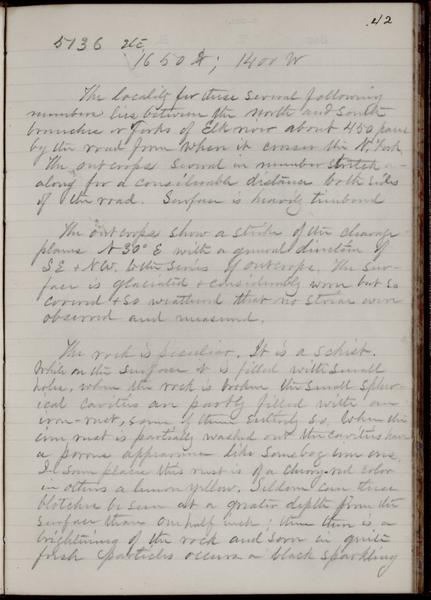 42
5136 etc
1650 N; 1400 W
The locality for these several following
numbers lies between the north and South
branches or forks of Elk river about 450 paces
by the road from when it crosses the N. Fork
The outcrops several in number stretch
along for a considerable distance both sides
of the road. Surface is heavily timbered
The outcrops show a strike of the cleavage
planes N 30° E with a general direction of
SE & NW. to the series of outcrops. The Sur-
face is glaciated & considerably worn but so
covered & so weathered that no striae were
observed and measured.
The rock is peculiar. It is a schist.
While on the surface it is filled with small
holes, when the rock is broken the small spher-
ical cavities are partly filled with an
iron-rust, some of them entirely so. When the
iron rust is partially washed out the cavities have
a porous appearance like some bog iron ores.
In some places this rust is of a cherry-red color
in others a lemon yellow. Seldom can these
blotches be seen at a greater depth from the
surface than one half inch; then there is a
brightening of the rock and soon in quite
fresh particles occurs a black sparkling